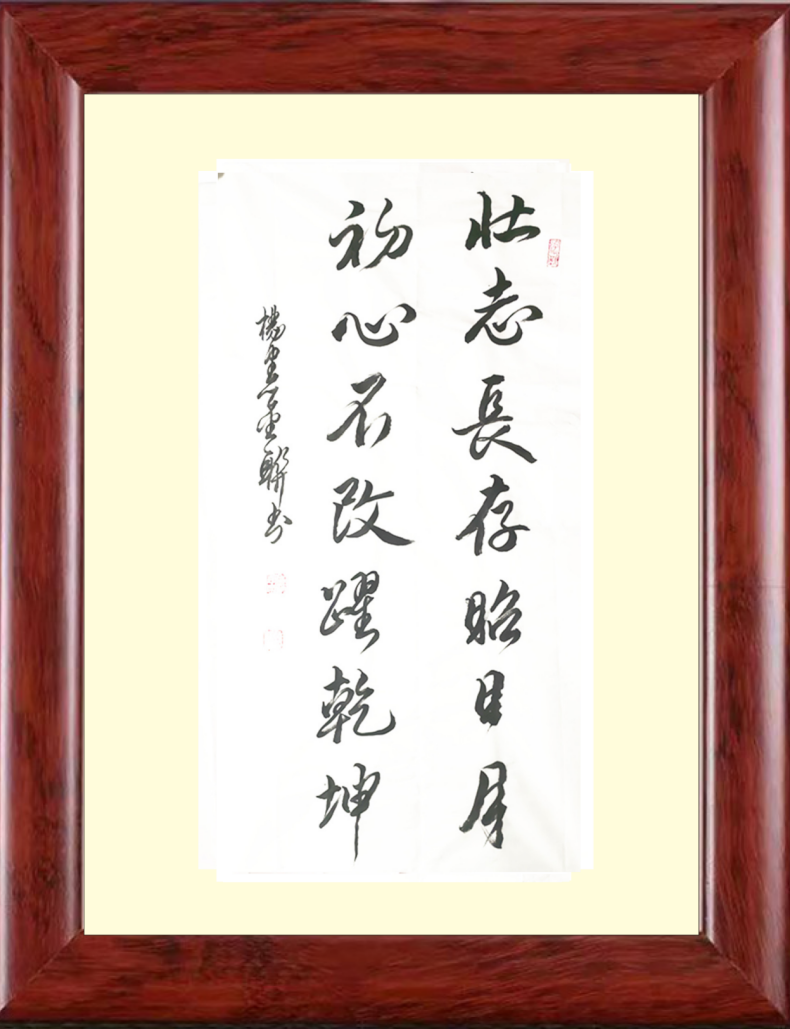 壮志長存昭日月
初心不改躍乾坤
聯書